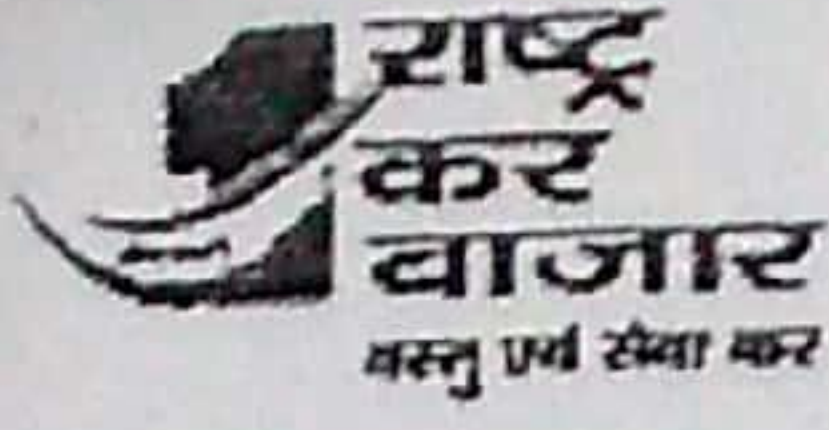 राष्ट्र
कर
बाजार
वस्तु एवं सेवा कर